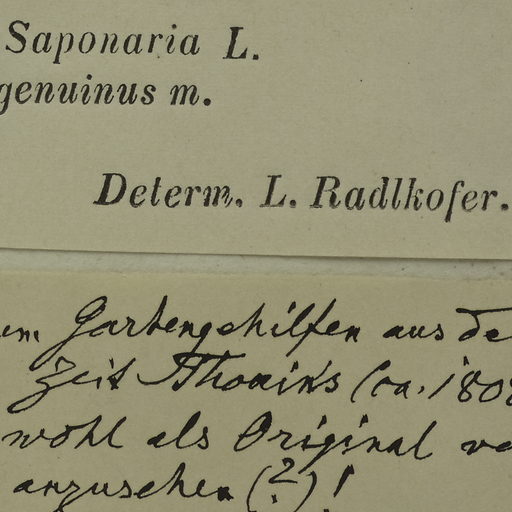 Saponaria L.
genuinus m.
Determ. L. Radlkofer.
Gartengehilfen aus
Zeit Thouin's (ca. 180
wohl als Original
anzusehen (?)!